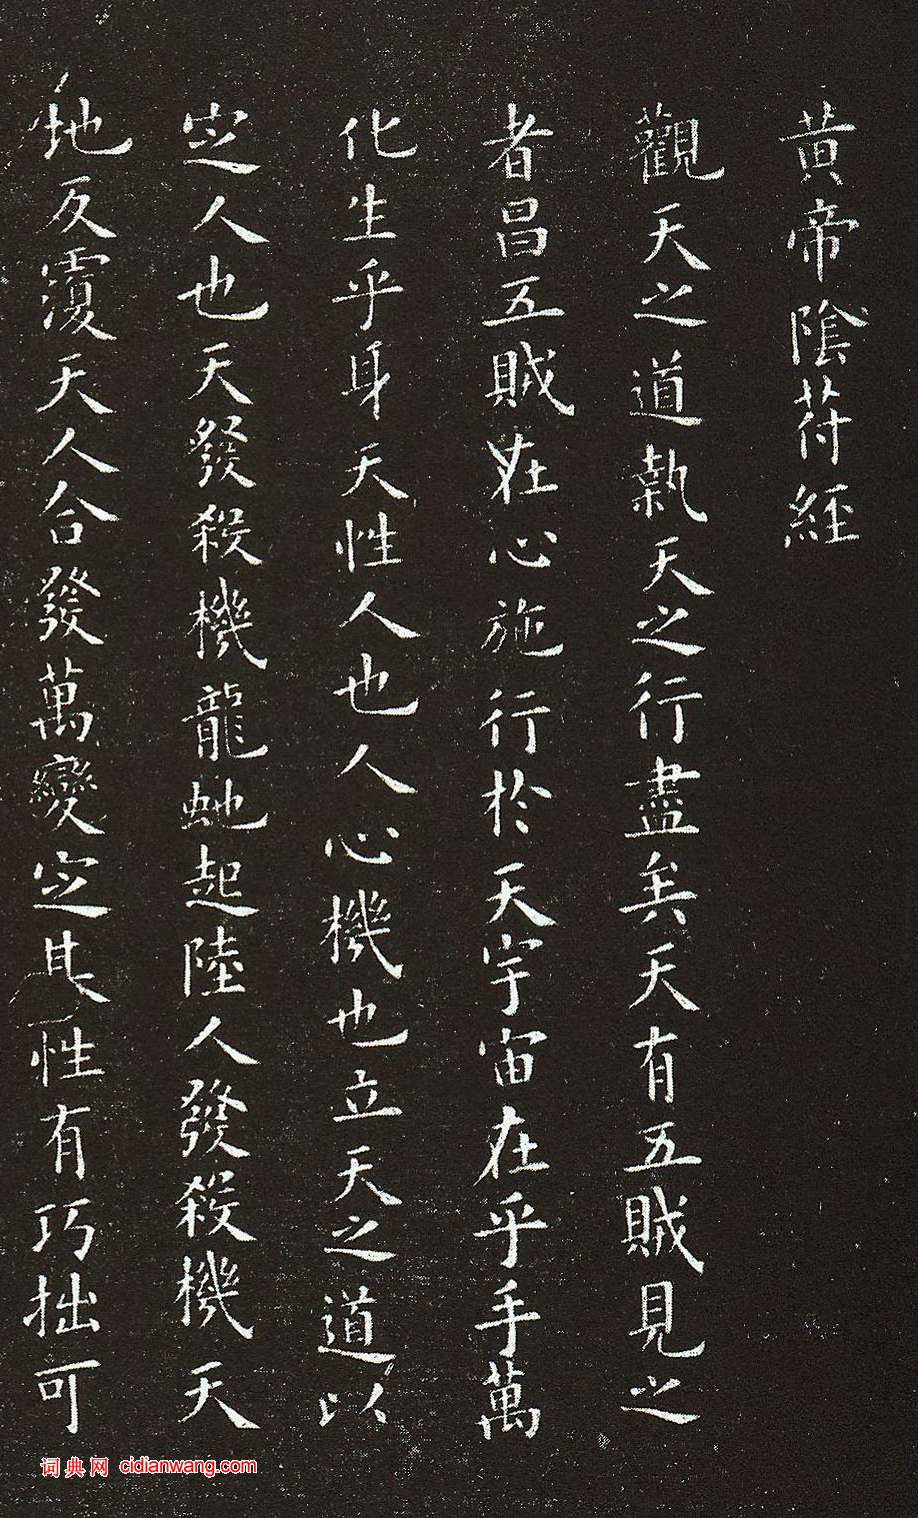 黃帝陰符經
觀天之道執天之行盡矣天有五賊見之
者昌五賊在心施行於天宇宙在乎手萬
化生乎身天性人也人心機也立天之道以
定人也天發殺機龍虵起陸人發殺機天
地反覆天人合發萬變定其性有巧拙可
词典网 cidianwang.com